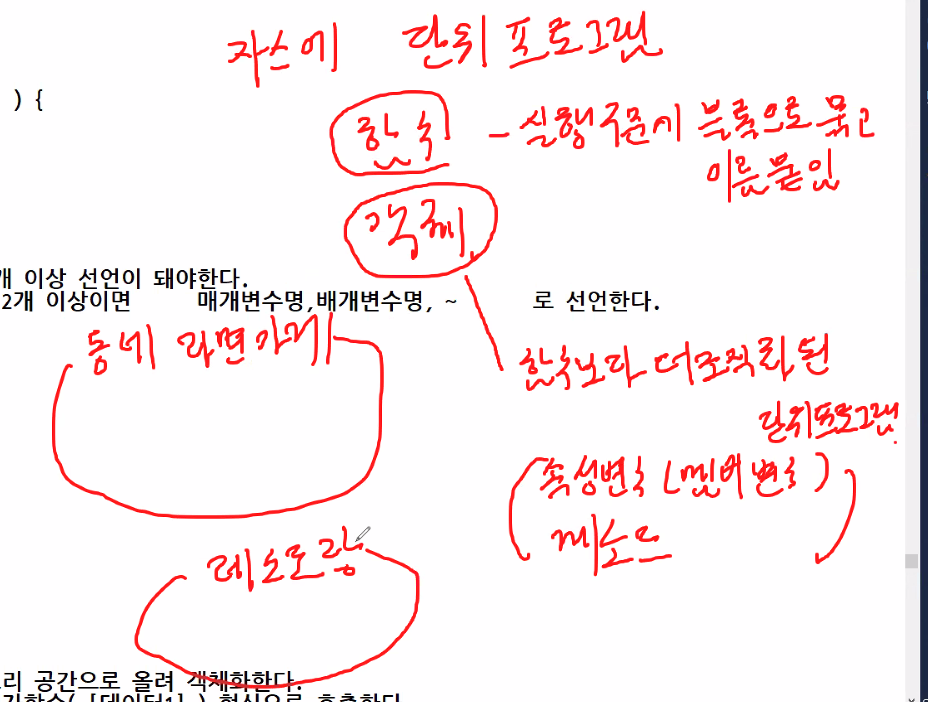 자스에 단위 프로그램
) {
함수 - 실행구문시 블록으로 묶고
이름붙임
객체
개 이상 선언이 돼야한다.
2개 이상이면 매개변수명,배개변수명, ~ 로 선언한다.
동네 라면가게
함수보다 더조직화 된
단위프로그램
속성변수 (멤버변수)
메소드
레스토랑
리 공간으로 올려 객체화한다.
기함수( [데이터1] ) 형식으로 호출한다